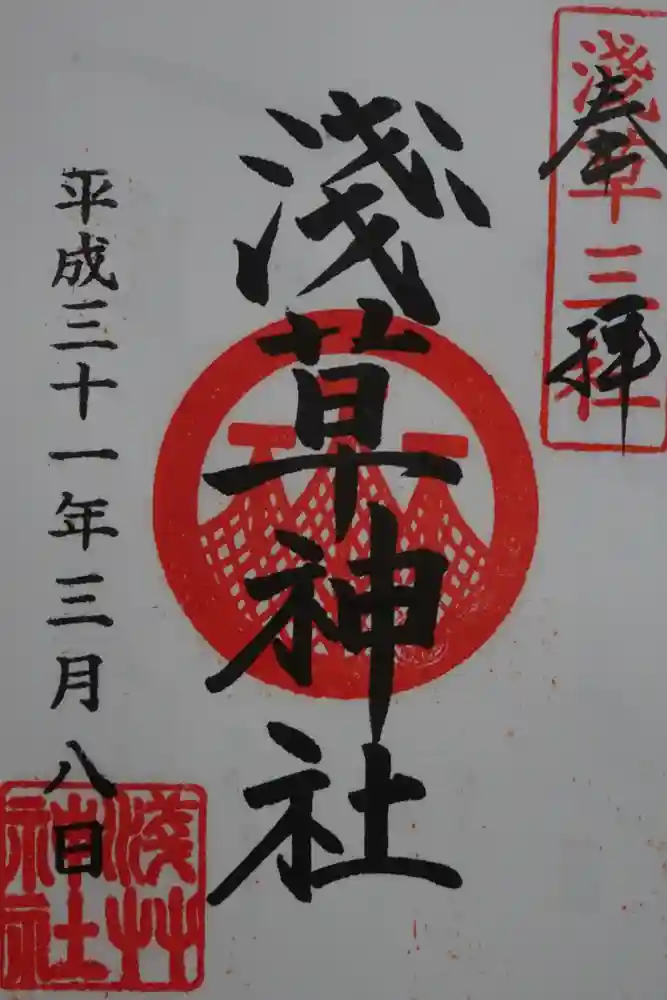 奉拝
淺草三社
淺草神社
平成三十一年三月八日
淺艸
神社